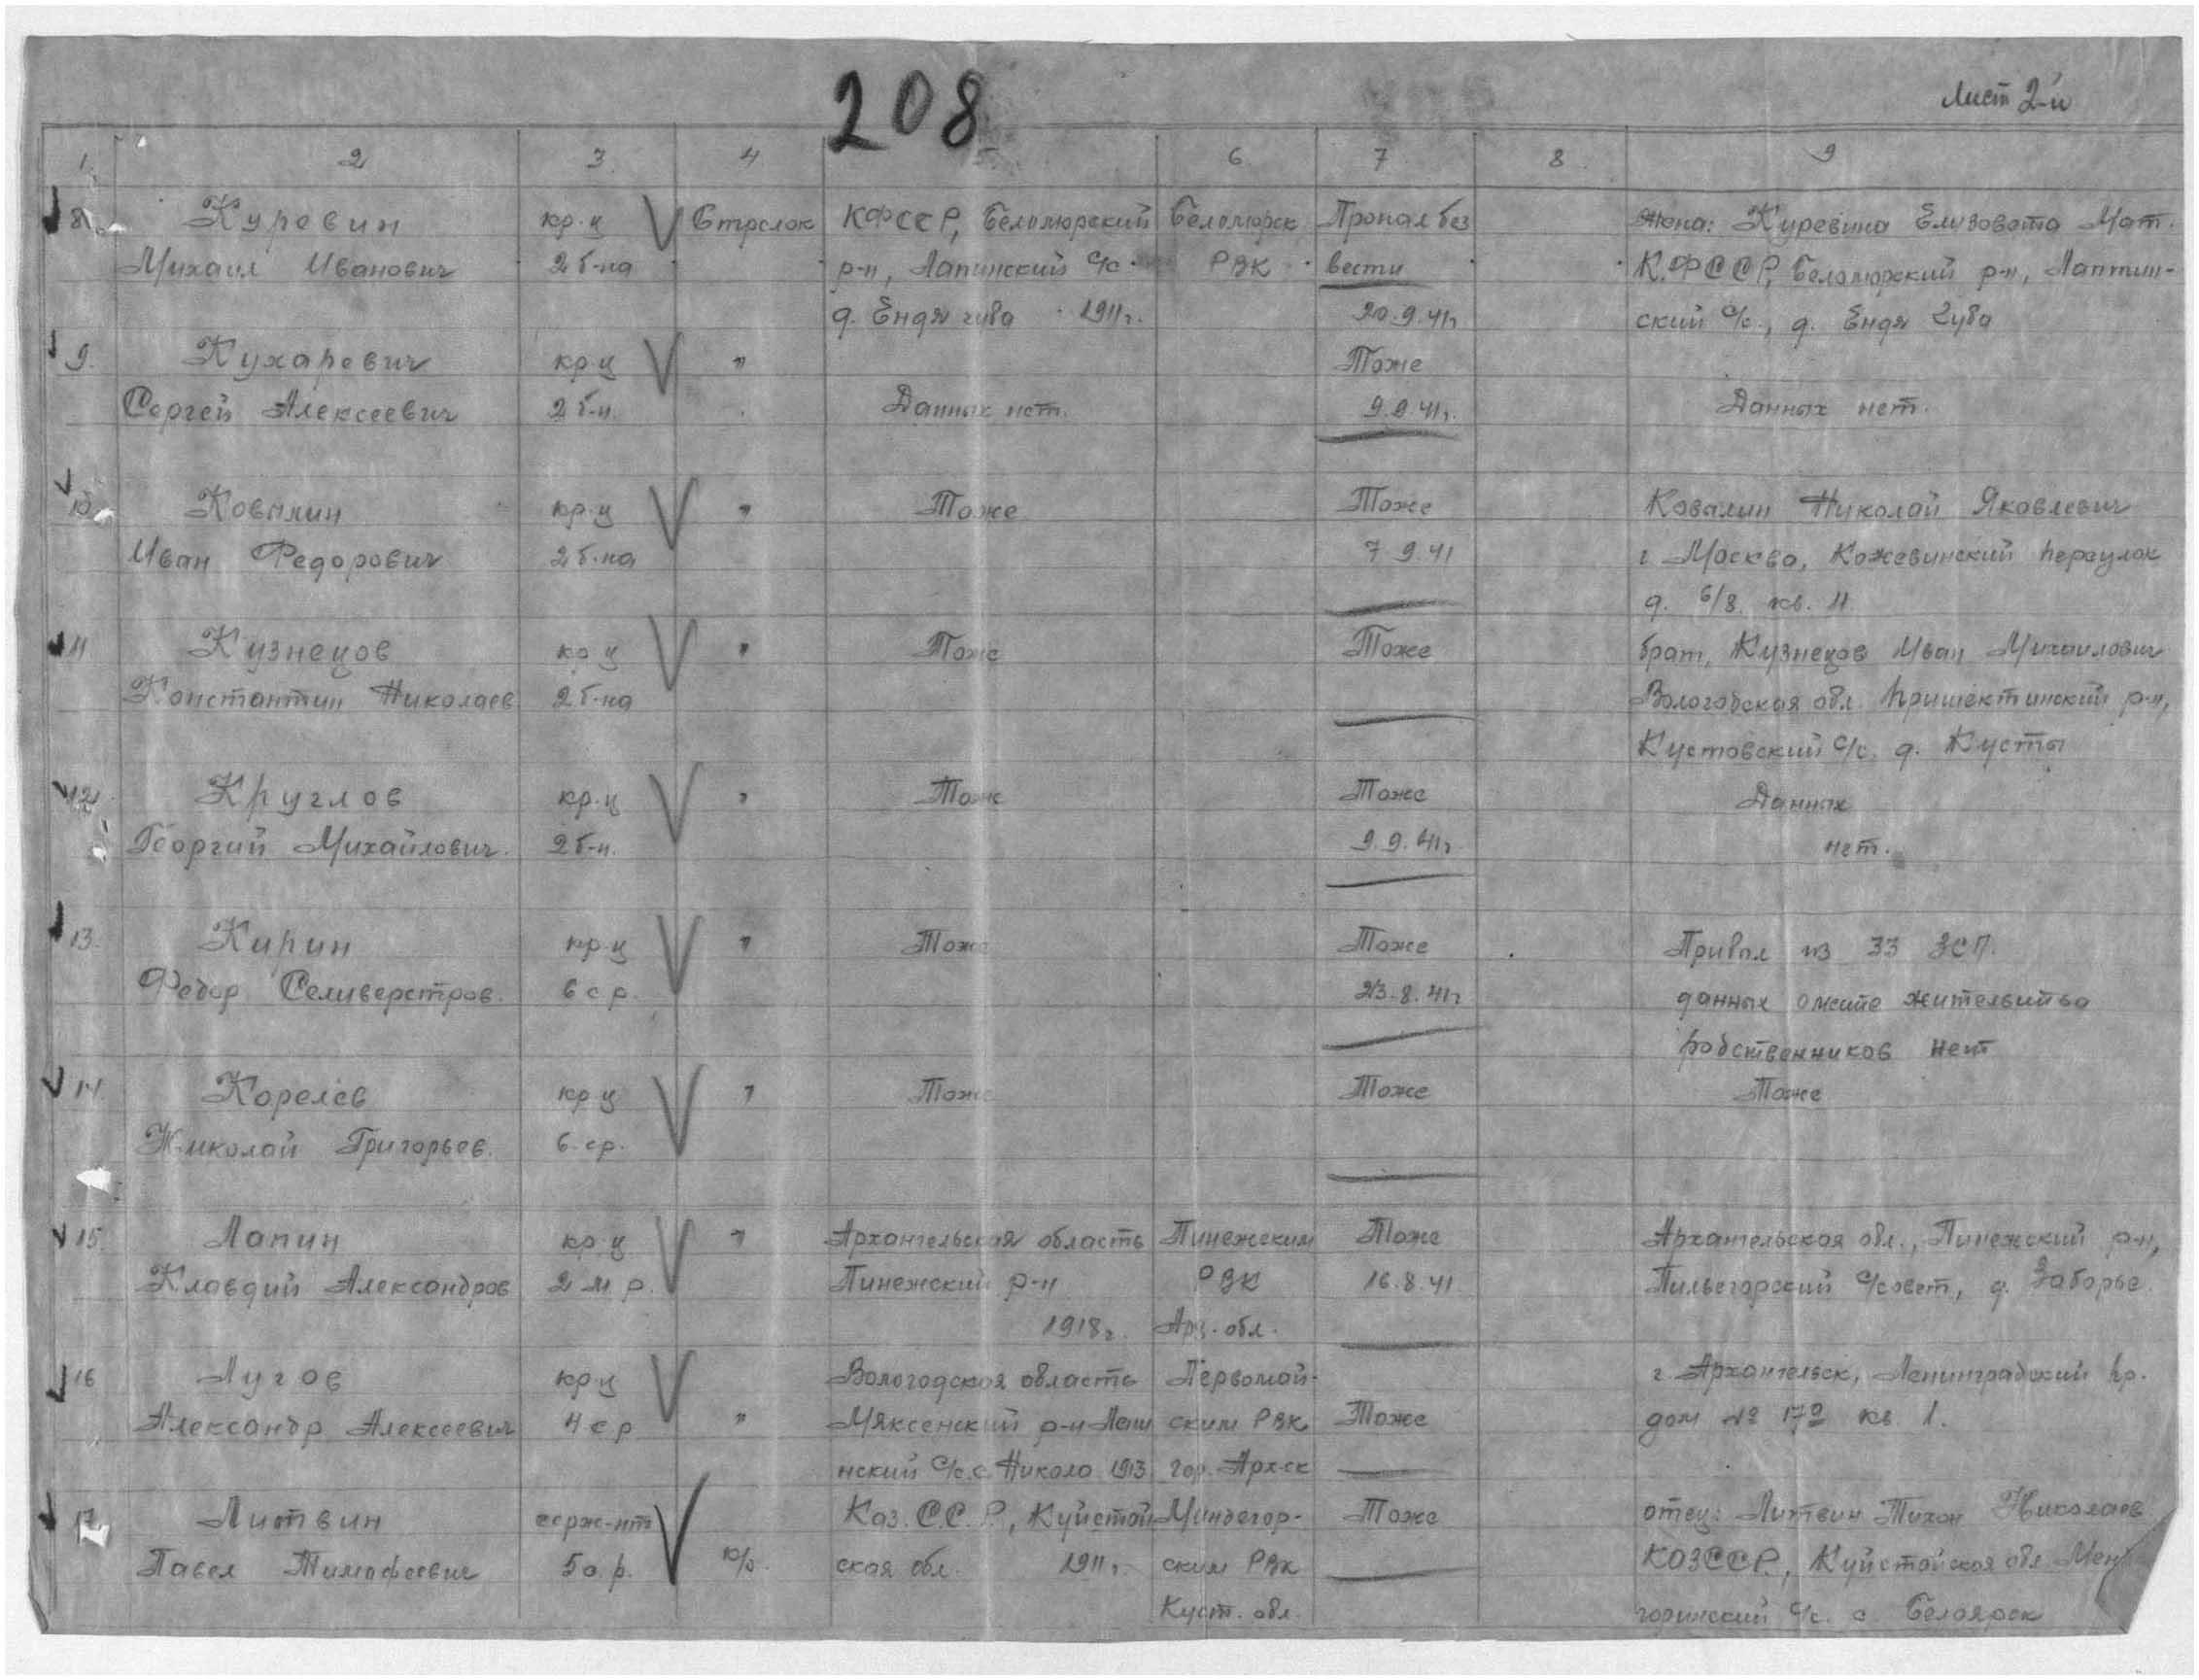 208
Лист 2-й
1 2 3 4 5 6 7 8 9
8 Куревин кр-ц Стрелок КФССР, Беломорский Беломорск Пропал без жена: Куревина Елизовата Мат.
Михаил Иванович 2 б-на р-н, Лапинский с/с РВК вести К.ФССР, Беломорский р-н, Лаптин-
д. Ендя губа 1911г. 20.9.41г ский с/с., д. Ендя Губа
9. Кухаревич кр-ц " Тоже
Сергей Алексеевич 2 б-н. Данных нет. 9.9.41г. Данных нет.
10 Ковылин кр-ц " Тоже Тоже Ковалин Николай Яковлевич
Иван Федорович 2 б-на 7 9.41 г Москва, Кожевинский переулок
д. 6/8. кв. 11
11 Кузнецов кр ц " Тоже Тоже брат, Кузнецов Иван Михаилович
Константин Николаев 2 б-на Вологодская обл. р-н,
Кустовский с/с. д. Кусты
12 Круглов кр-ц " Тоже Тоже Данных
Георгий Михайлович. 2 б-н. 9.9.41г. нет.
13. Кирин кр-ц " Тоже Тоже Прибыл из 33 ЗСП.
Федор Селиверстров. 6 с р. 23.8.41г данных о месте жительства
родственников нет
14. Корелев кр ц " Тоже Тоже Тоже
Николай Григорьев. 6. ср.
15 Лапин кр-ц " Архангельская область Пинежским Тоже Архангельская обл., Пинежский р-н,
Клавдий Александров 2 м р. Пинежский р-н РВК 16.8.41 Пильегорский с/совет, д. Заборье.
1918г. Арх. обл.
16 Лугов кр-ц Вологодская область Первомай- г. Архангельск, Ленинградский пр.
Александр Алексеевич 4 с р " Мяксенский р-н ским РВК Тоже дом № 170 кв 1.
нский с/с. с. Николо 1913 гор. Арх-ск
17. Литвин серж-нт Каз. С.С.Р., Куйстой Миндегор- Тоже отец: Литвин Тихон Николаев
Павел Тимофеевич 5 о. р. к/о. ская обл. 1911г. ским РВК КОЗССР., Куйстойская обл
Куст. обл. с/с. с. Белоярск